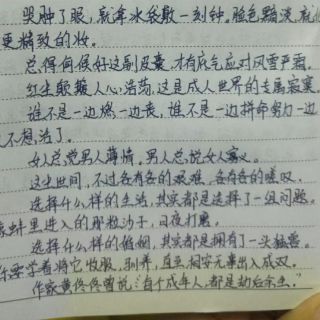 哭肿了眼，就拿冰袋敷一刻钟。脸色黯淡，就
更精致的妆。
总得伺候好这副皮囊，才有底气应对风雪严霜。
红尘颠簸，人心浩荡，这是成人世界的专属寂寞。
谁不是一边熬一边丧，谁不是一边拼命努力一边
不想活了。
女人总觉男人薄情，男人总说女人寡义。
这尘世间，不过各有各的艰难，各有各的嗟叹。
选择什么样的生活，其实都是选择了一组问题。
蚌里进入的那粒沙子，日夜打磨。
选择什么样的婚姻，其实都是拥有了一头独兽。
要学着将它收服，驯养，直至相安无事出入成双。
作家黄佟佟曾说："每个成年人，都是劫后余生。"